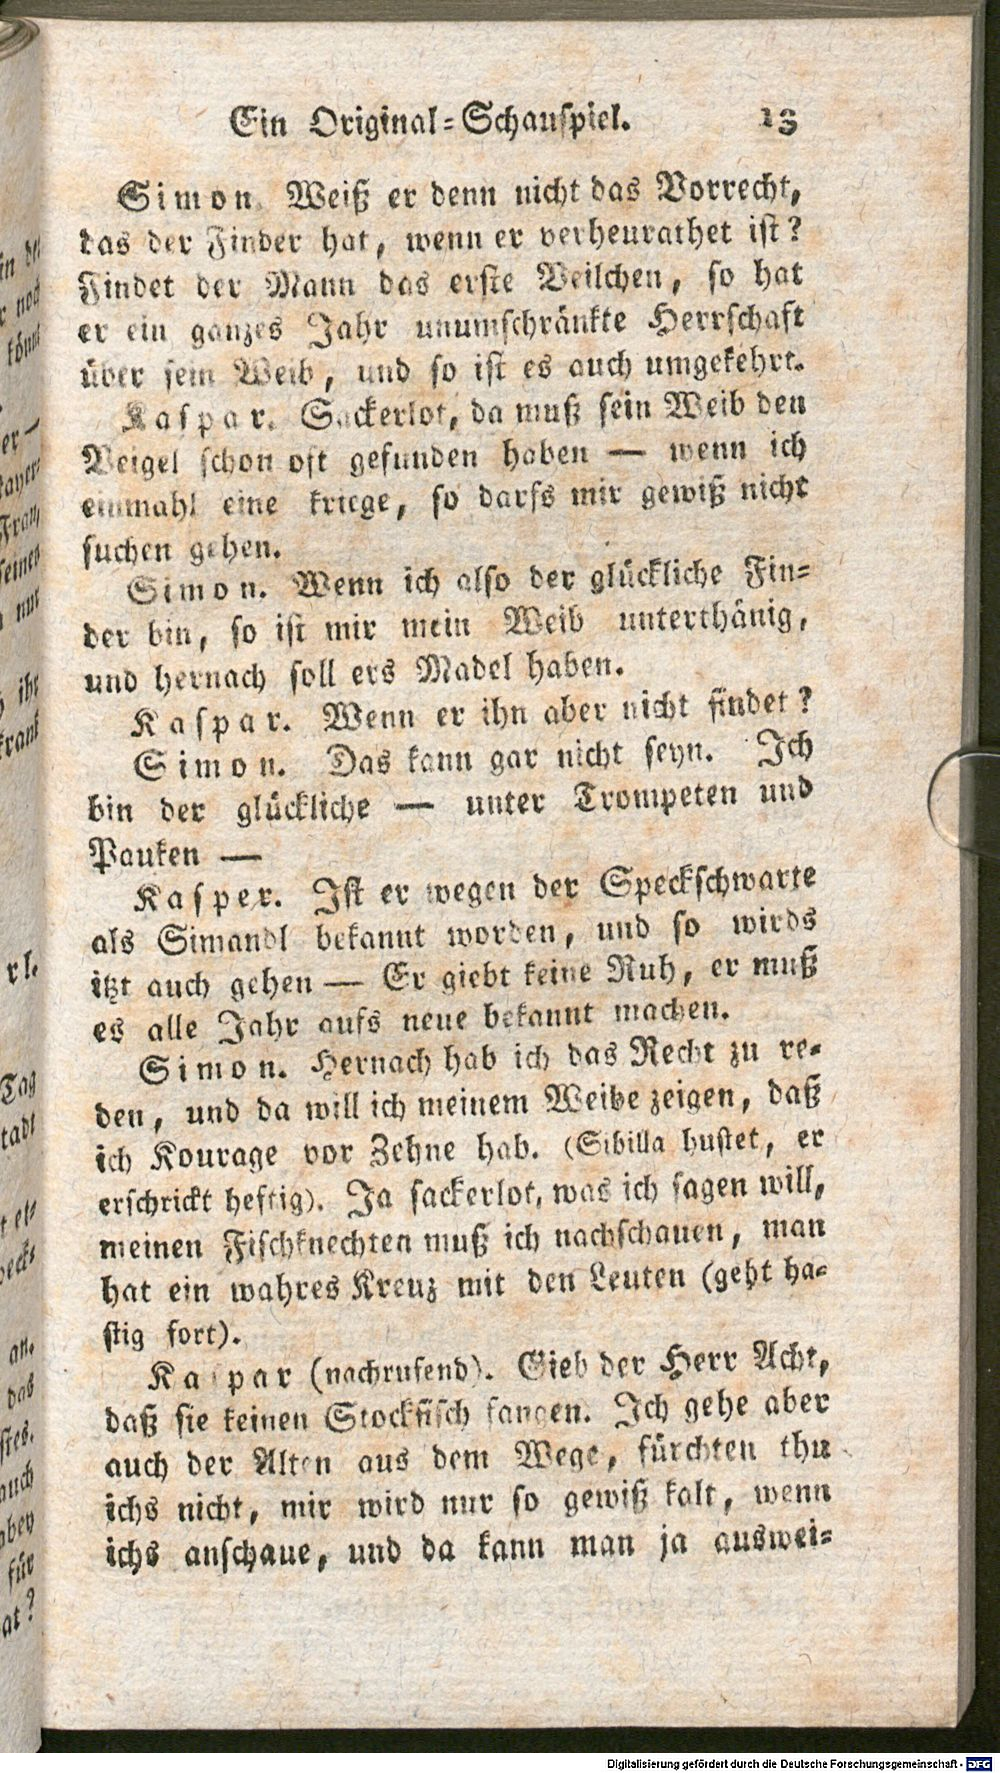 Ein Original-Schauspiel. 13
Simon. Weiß er denn nicht das Vorrecht,
das der Finder hat, wenn er verheurathet ist?
Findet der Mann das erste Veilchen, so hat
er ein ganzes Jahr unumschränkte Herrschaft
über sein Weib, und so ist es auch umgekehrt.
Kaspar. Sackerlot, da muß sein Weib den
Veigel schon oft gefunden haben — wenn ich
einmahl eine kriege, so darfs mir gewiß nicht
suchen gehen.
Simon. Wenn ich also der glückliche Fin-
der bin, so ist mir mein Weib unterthänig,
und hernach soll ers Madel haben.
Kaspar. Wenn er ihn aber nicht findet?
Simon. Das kann gar nicht seyn. Ich
bin der glückliche — unter Trompeten und
Pauken —
Kasper. Ist er wegen der Speckschwarte
als Simandl bekannt worden, und so wirds
itzt auch gehen — Er giebt keine Ruh, er muß
es alle Jahr aufs neue bekannt machen.
Simon. Hernach hab ich das Recht zu re-
den, und da will ich meinem Weibe zeigen, daß
ich Kourage vor Zehne hab. (Sibilla hustet, er
erschrickt heftig). Ja sackerlot, was ich sagen will,
meinen Fischknechten muß ich nachschauen, man
hat ein wahres Kreuz mit den Leuten (geht ha-
stig fort).
Kaspar (nachrufend). Gieb der Herr Acht,
daß sie keinen Stockfisch fangen. Ich gehe aber
auch der Alten aus dem Wege, fürchten thu
ichs nicht, mir wird nur so gewiß kalt, wenn
ichs anschaue, und da kann man ja auswei-
Digitalisierung gefördert durch die Deutsche Forschungsgemeinschaft - DFG